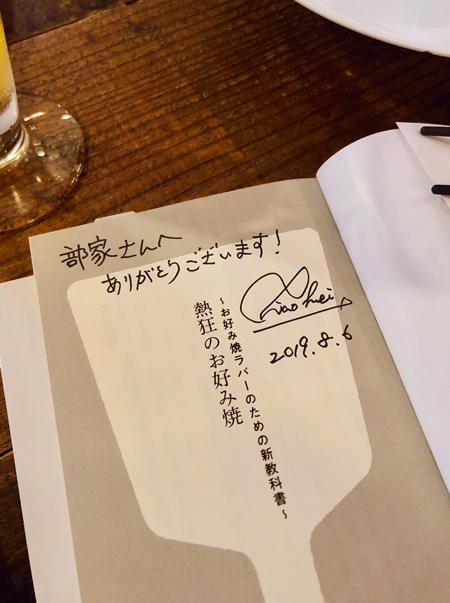 部家さんへ
ありがとうございます!
2019.8.6
～お好み焼ラバーのための新教科書～
熱狂のお好み焼